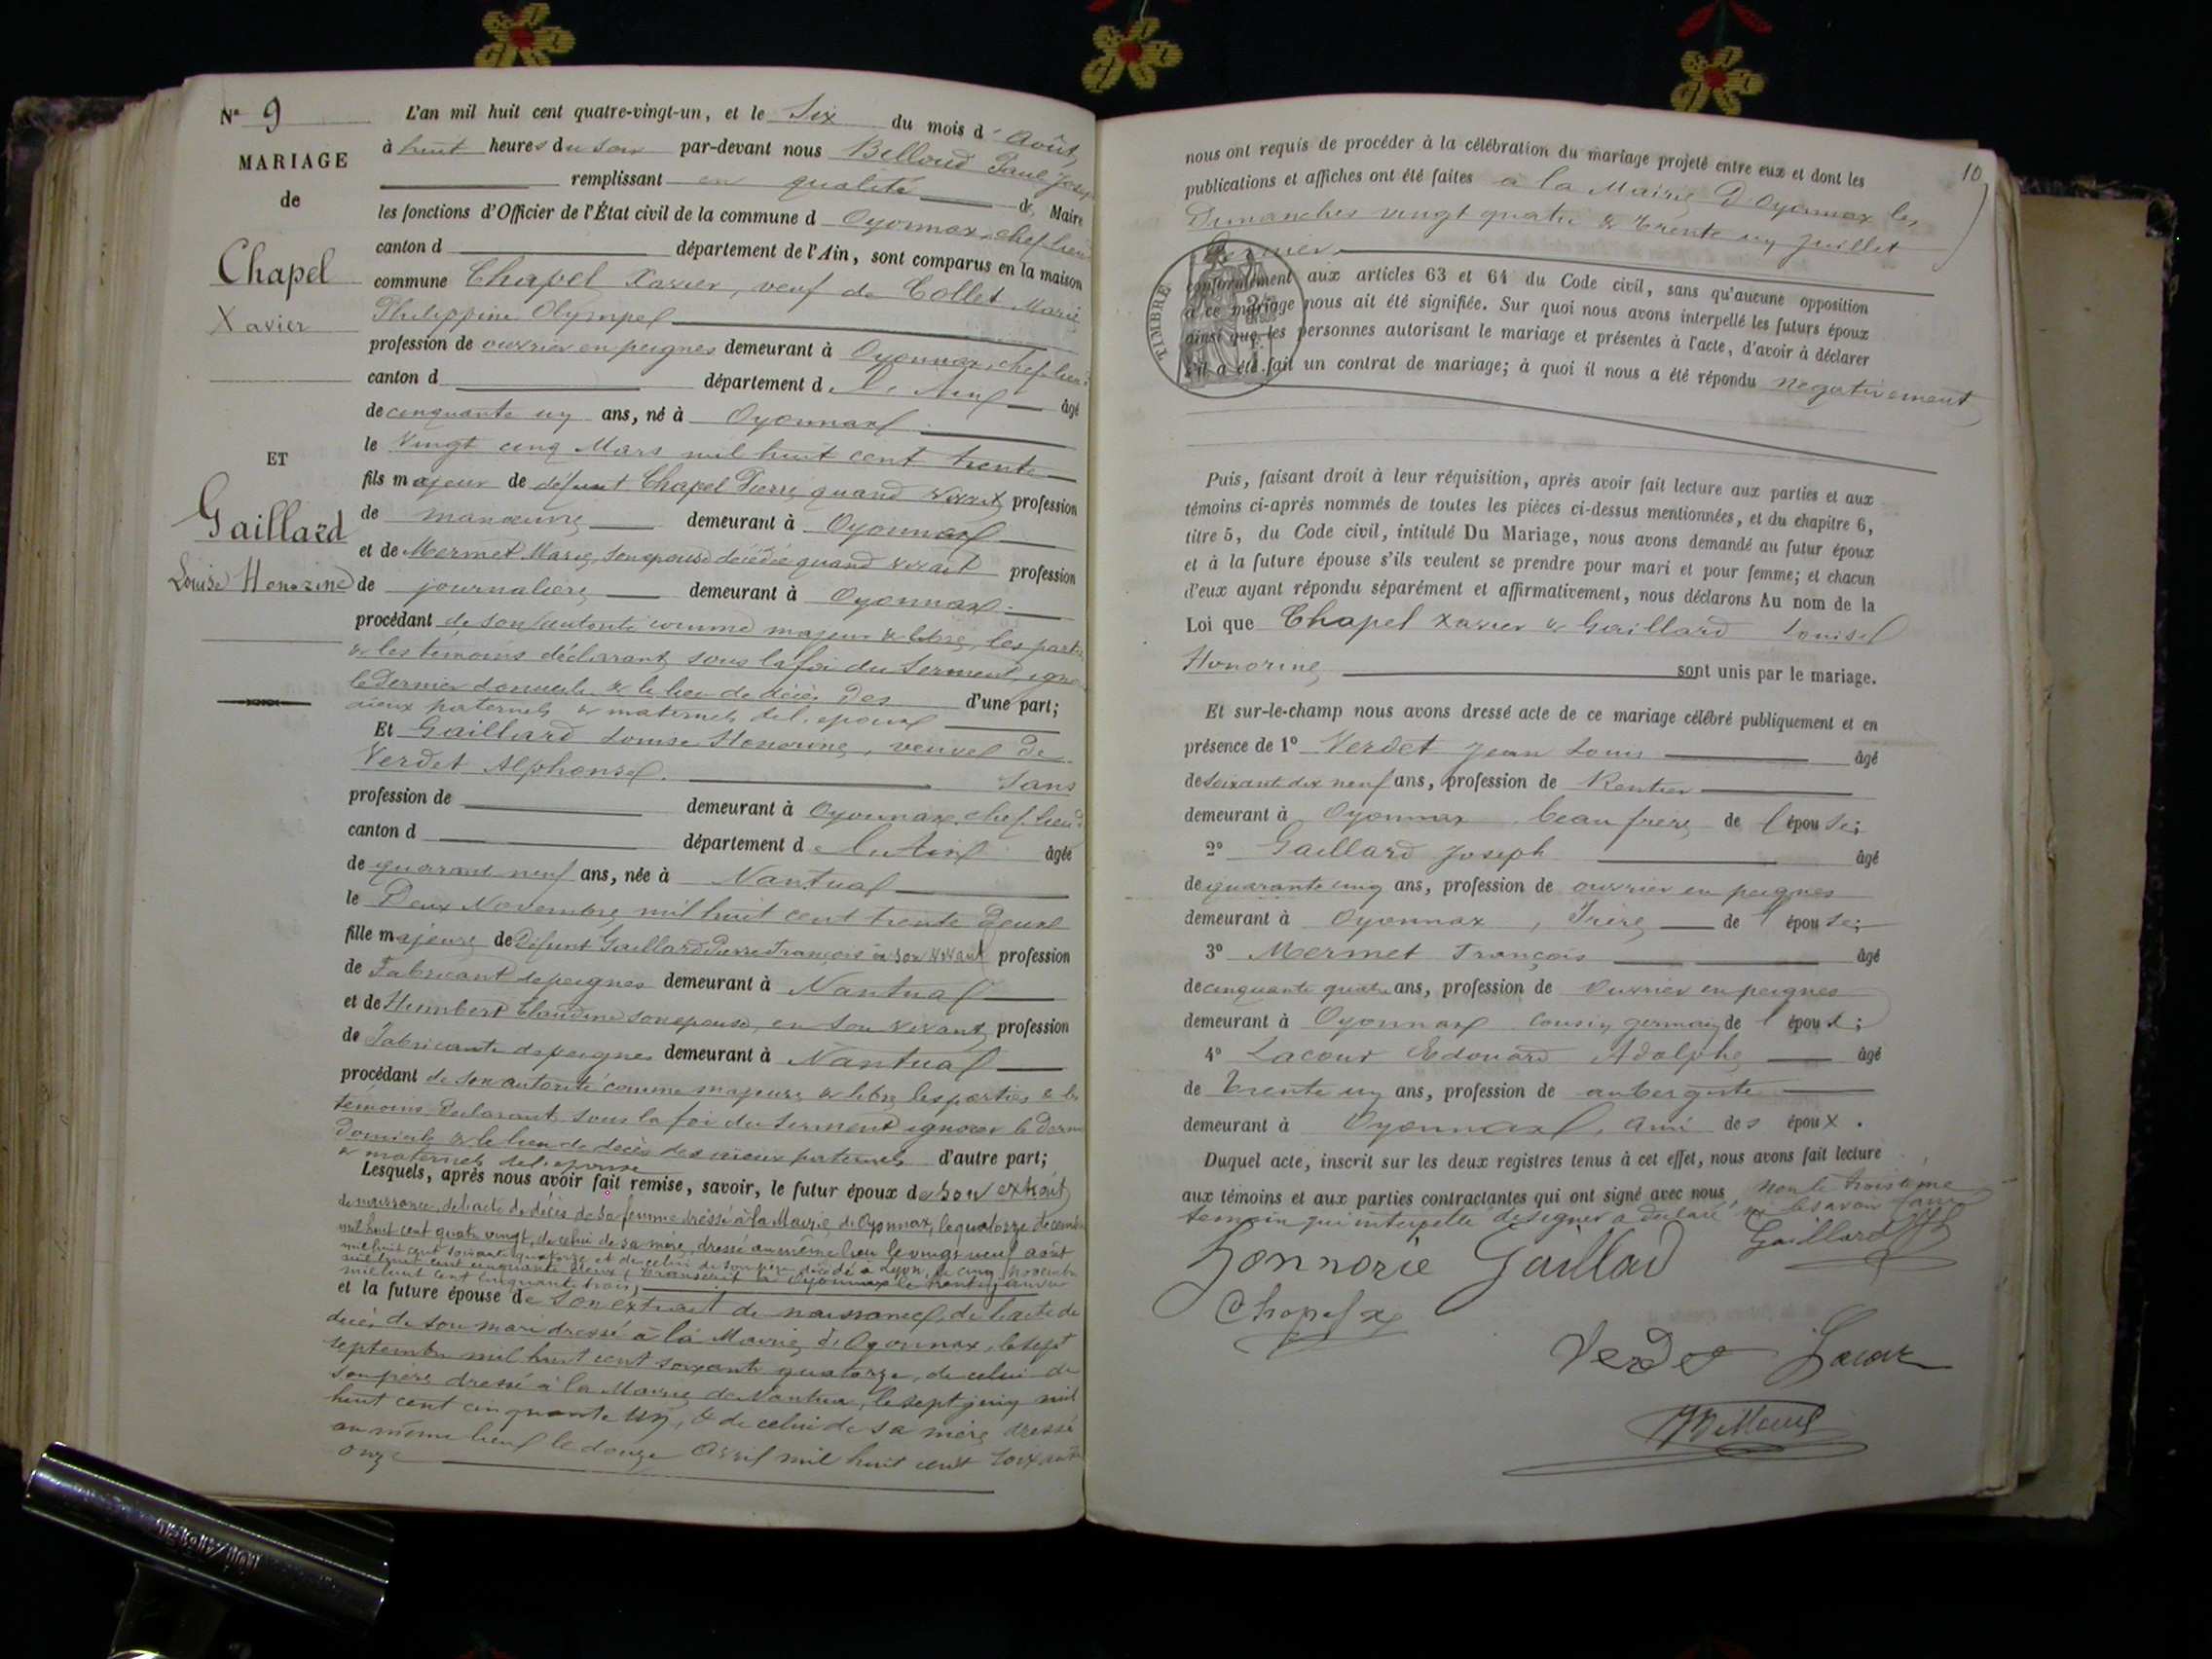 N° 9
MARIAGE
de
Chapel
Xavier
ET
Gaillard
Louise Honorine
L'an mil huit cent quatre-vingt-un, et le Six du mois d'Août,
à huit heures du soir par-devant nous Belloud Paul Joseph
remplissant en qualité de Maire
les fonctions d'Officier de l'État civil de la commune d Oyonnax, chef lieu
canton d département de l'Ain, sont comparus en la maison
commune Chapel Xavier, veuf de Collet Marie
Philippine Olympe
profession de ouvrier en peignes demeurant à Oyonnax, chef lieu
canton d département d l'Ain âgé
de cinquante un ans, né à Oyonnax
le vingt cinq Mars mil huit cent trente
fils majeur de défunt Chapel Pierre quand vivait profession
de manœuvre demeurant à Oyonnax
et de Mermet Marie, son épouse décédée quand vivait profession
de journalière demeurant à Oyonnax
procédant de son autorité comme majeur & libre, les parties
& les témoins déclarant sous la foi du serment, igno
le dernier domicile & le lieu de décès des d'une part;
aieux paternels & maternels de l'époux
Et Gaillard Louise Honorine, veuve de
Verdet Alphonse. Sans
profession de demeurant à Oyonnax, chef lieu
canton d département d l'Ain âgée
de quarante neuf ans, née à Nantua
le Deux Novembre mil huit cent trente deux
fille majeure de Défunt Gaillard Pierre François en son vivant profession
de Fabricant de peignes demeurant à Nantua
et de Humbert Claudine son épouse, en son vivant profession
de Fabricante de peignes demeurant à Nantua
procédant de son autorité comme majeure & libre les parties & les
témoins déclarant sous la foi du serment ignorer le dernier
domicile & le lieu de décès des aieux paternels d'autre part;
& maternels de l'épouse
Lesquels, après nous avoir fait remise, savoir, le futur époux de son extrait
de naissance, de l'acte de décès de sa femme dressé à la Mairie d'Oyonnax, le quatorze décembre
mil huit cent quatre vingt, de celui de sa mère, dressé au même lieu le vingt neuf août
mil huit cent soixante quatorze, et de celui de son père décédé à Lyon, le cinq novembre
mil huit cent cinquante deux, transcrit à Oyonnax le trente janvier
mil huit cent cinquante trois,
et la future épouse de son extrait de naissance, de l'acte de
décès de son mari dressé à la Mairie d'Oyonnax, le sept
septembre mil huit cent soixante quatorze, de celui de
son père dressé à la Mairie de Nantua, le sept juin mil
huit cent cinquante un, & de celui de sa mère dressé
au même lieu le douze Avril mil huit cent soixante
onze
10
nous ont requis de procéder à la célébration du mariage projeté entre eux et dont les
publications et affiches ont été faites à la Mairie D'Oyonnax les
Dimanches vingt quatre & trente un juillet
dernier.
TIMBRE
conformément aux articles 63 et 64 du Code civil, sans qu'aucune opposition
à ce mariage nous ait été signifiée. Sur quoi nous avons interpellé les futurs époux
ainsi que les personnes autorisant le mariage et présentes à l'acte, d'avoir à déclarer
s'il a été fait un contrat de mariage; à quoi il nous a été répondu négativement
Puis, faisant droit à leur réquisition, après avoir fait lecture aux parties et aux
témoins ci-après nommés de toutes les pièces ci-dessus mentionnées, et du chapitre 6,
titre 5, du Code civil, intitulé Du Mariage, nous avons demandé au futur époux
et à la future épouse s'ils veulent se prendre pour mari et pour femme; et chacun
d'eux ayant répondu séparément et affirmativement, nous déclarons Au nom de la
Loi que Chapel Xavier & Gaillard Louise
Honorine sont unis par le mariage.
Et sur-le-champ nous avons dressé acte de ce mariage célébré publiquement et en
présence de 1° Verdet Jean Louis âgé
de soixante dix neuf ans, profession de Rentier
demeurant à Oyonnax beau frère de l'épouse;
2° Gaillard Joseph âgé
de quarante cinq ans, profession de ouvrier en peignes
demeurant à Oyonnax, Frère de l'épouse;
3° Mermet François âgé
de cinquante quatre ans, profession de Ouvrier en peignes
demeurant à Oyonnax cousin germain de l'époux;
4° Lacour Edouard Adolphe âgé
de trente un ans, profession de aubergiste
demeurant à Oyonnax, ami des époux.
Duquel acte, inscrit sur les deux registres tenus à cet effet, nous avons fait lecture
aux témoins et aux parties contractantes qui ont signé avec nous, non le troisième
témoin qui interpellé de signer a déclaré ne le savoir faire
Honnorie Gaillard
Gaillard
Chapel x
Verdet Lacour
Belloud